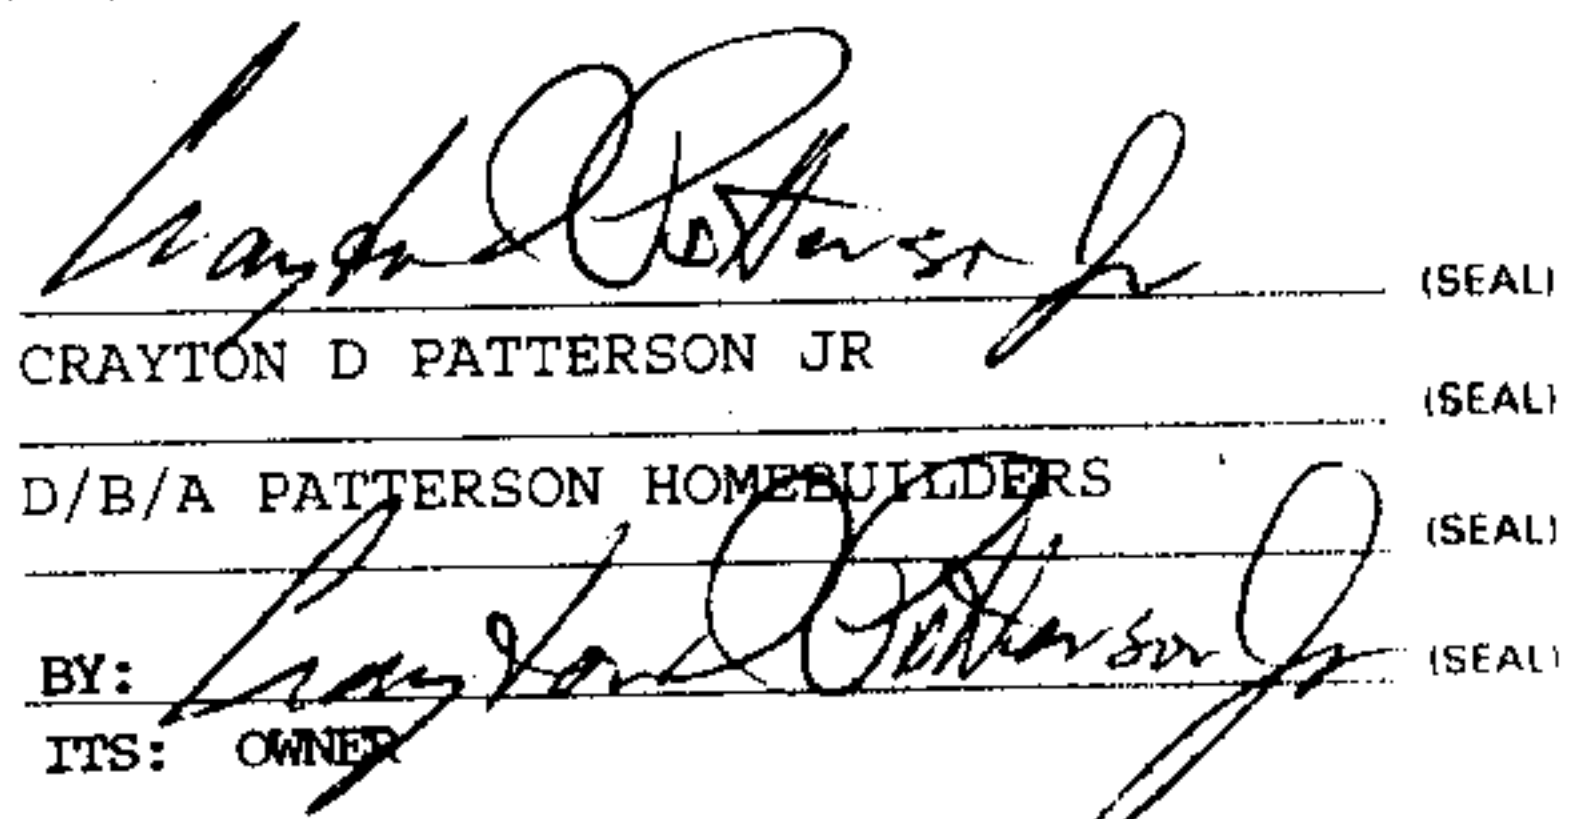 Crayton D Patterson Jr (SEAL)
CRAYTON D PATTERSON JR
(SEAL)
D/B/A PATTERSON HOMEBUILDERS
(SEAL)
BY: Crayton D Patterson Jr (SEAL)
ITS: OWNER